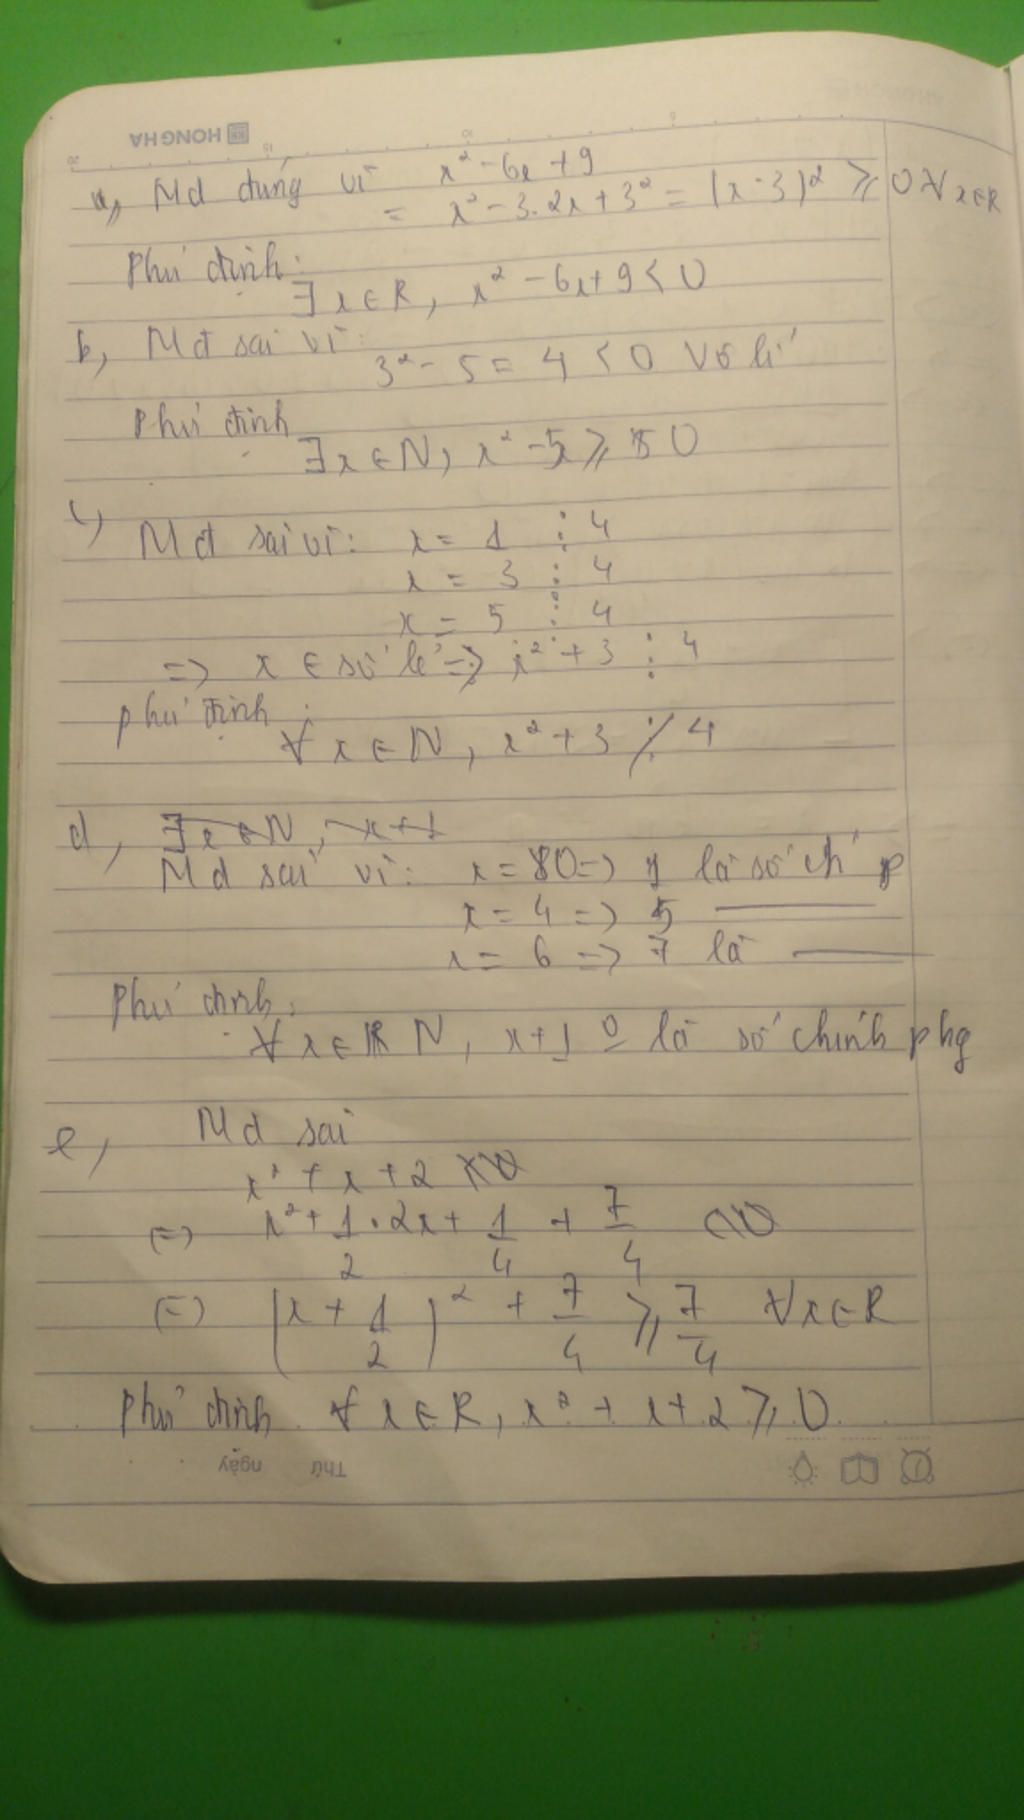 HONG HA
a, Md đúng vì x² - 6x + 9
= x² - 3.2x + 3² = (x - 3)² ≥ 0 ∀x∈R
Phủ định:
∃x∈R, x² - 6x + 9 < 0
b, Md sai vì:
3² - 5 = 4 < 0 vô lí
Phủ định
∃x∈N, x² - 5x ≥ 0
c, Md sai vì: x = 1 ⋮ 4
x = 3 ⋮ 4
x = 5 ⋮ 4
=> x ∈ số lẻ => x² + 3 ⋮ 4
phủ định:
∀x∈N, x² + 3 ⋮̸ 4
d, ∃x∈N, x+1
Md sai vì: x = 0 => 1 là số ch p
x = 4 => 5 ———
x = 6 => 7 là ———
Phủ định:
∀x∈ N, x+1 0 là số chính phg
e, Md sai
x² + x + 2
(=) x² + 1/2 . 2x + 1/4 + 7/4 <0
(=) (x + 1/2)² + 7/4 ≥ 7/4 ∀x∈R
Phủ định ∀x∈R, x² + x + 2 ≥ 0.
Thứ ngày